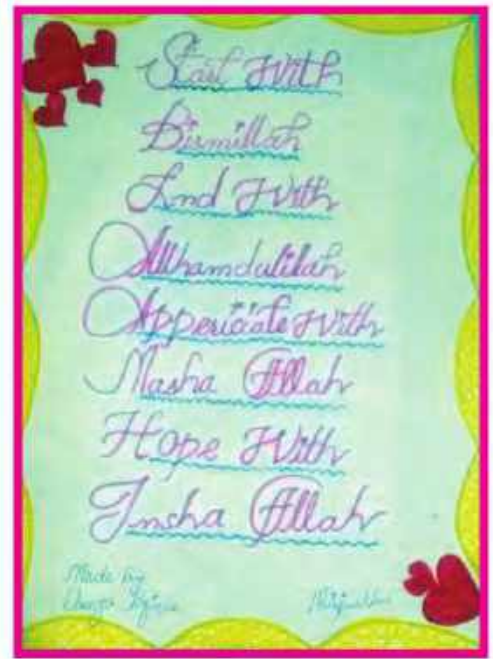 Start With
Bismillah
End With
Allhamdulilah
Appericiate With
Masha Allah
Hope With
Insha Allah
Made by